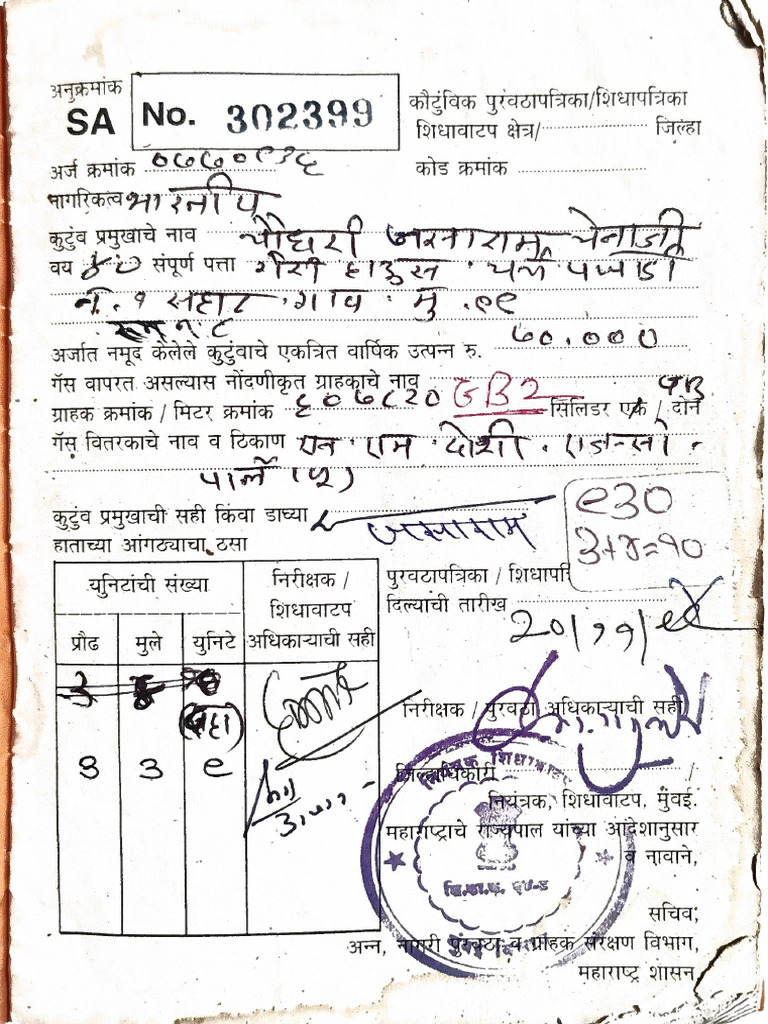 अनुक्रमांक
SA No. 302399
कौटुंबिक पुरवठापत्रिका/शिधापत्रिका
शिधावाटप क्षेत्र/ जिल्हा
अर्ज क्रमांक ०७७०९३६
कोड क्रमांक
नागरिकत्व भारतीय
कुटुंब प्रमुखाचे नाव चौधरी जसाराम चेनाजी
वय ४० संपूर्ण पत्ता हाउस
नं. १ सहार गाव मु. ९९
अर्जात नमूद केलेले कुटुंबाचे एकत्रित वार्षिक उत्पन्न रु. ७०.०००
गॅस वापरत असल्यास नोंदणीकृत ग्राहकाचे नाव
ग्राहक क्रमांक / मिटर क्रमांक ६०७८२० GB2 सिलिंडर एक / दोन
गॅस वितरकाचे नाव व ठिकाण एन एम दोशी
पार्ले (पू)
कुटुंब प्रमुखाची सही किंवा डाव्या जसाराम
हाताच्या आंगठ्याचा ठसा
९३०
३+४=१०
युनिटांची संख्या निरीक्षक / शिधावाटप अधिकाऱ्याची सही
प्रौढ मुले युनिटे
(दहा)
३ ९
पुरवठापत्रिका / शिधापत्रि
दिल्याची तारीख २०/११/
निरीक्षक / पुरवठा अधिकाऱ्याची सही
जिल्हाधिकारी /
नियंत्रक, शिधावाटप, मुंबई.
महाराष्ट्राचे राज्यपाल यांच्या आदेशानुसार
व नावाने,
सचिव,
अन्न, नागरी पुरवठा व ग्राहक संरक्षण विभाग,
महाराष्ट्र शासन